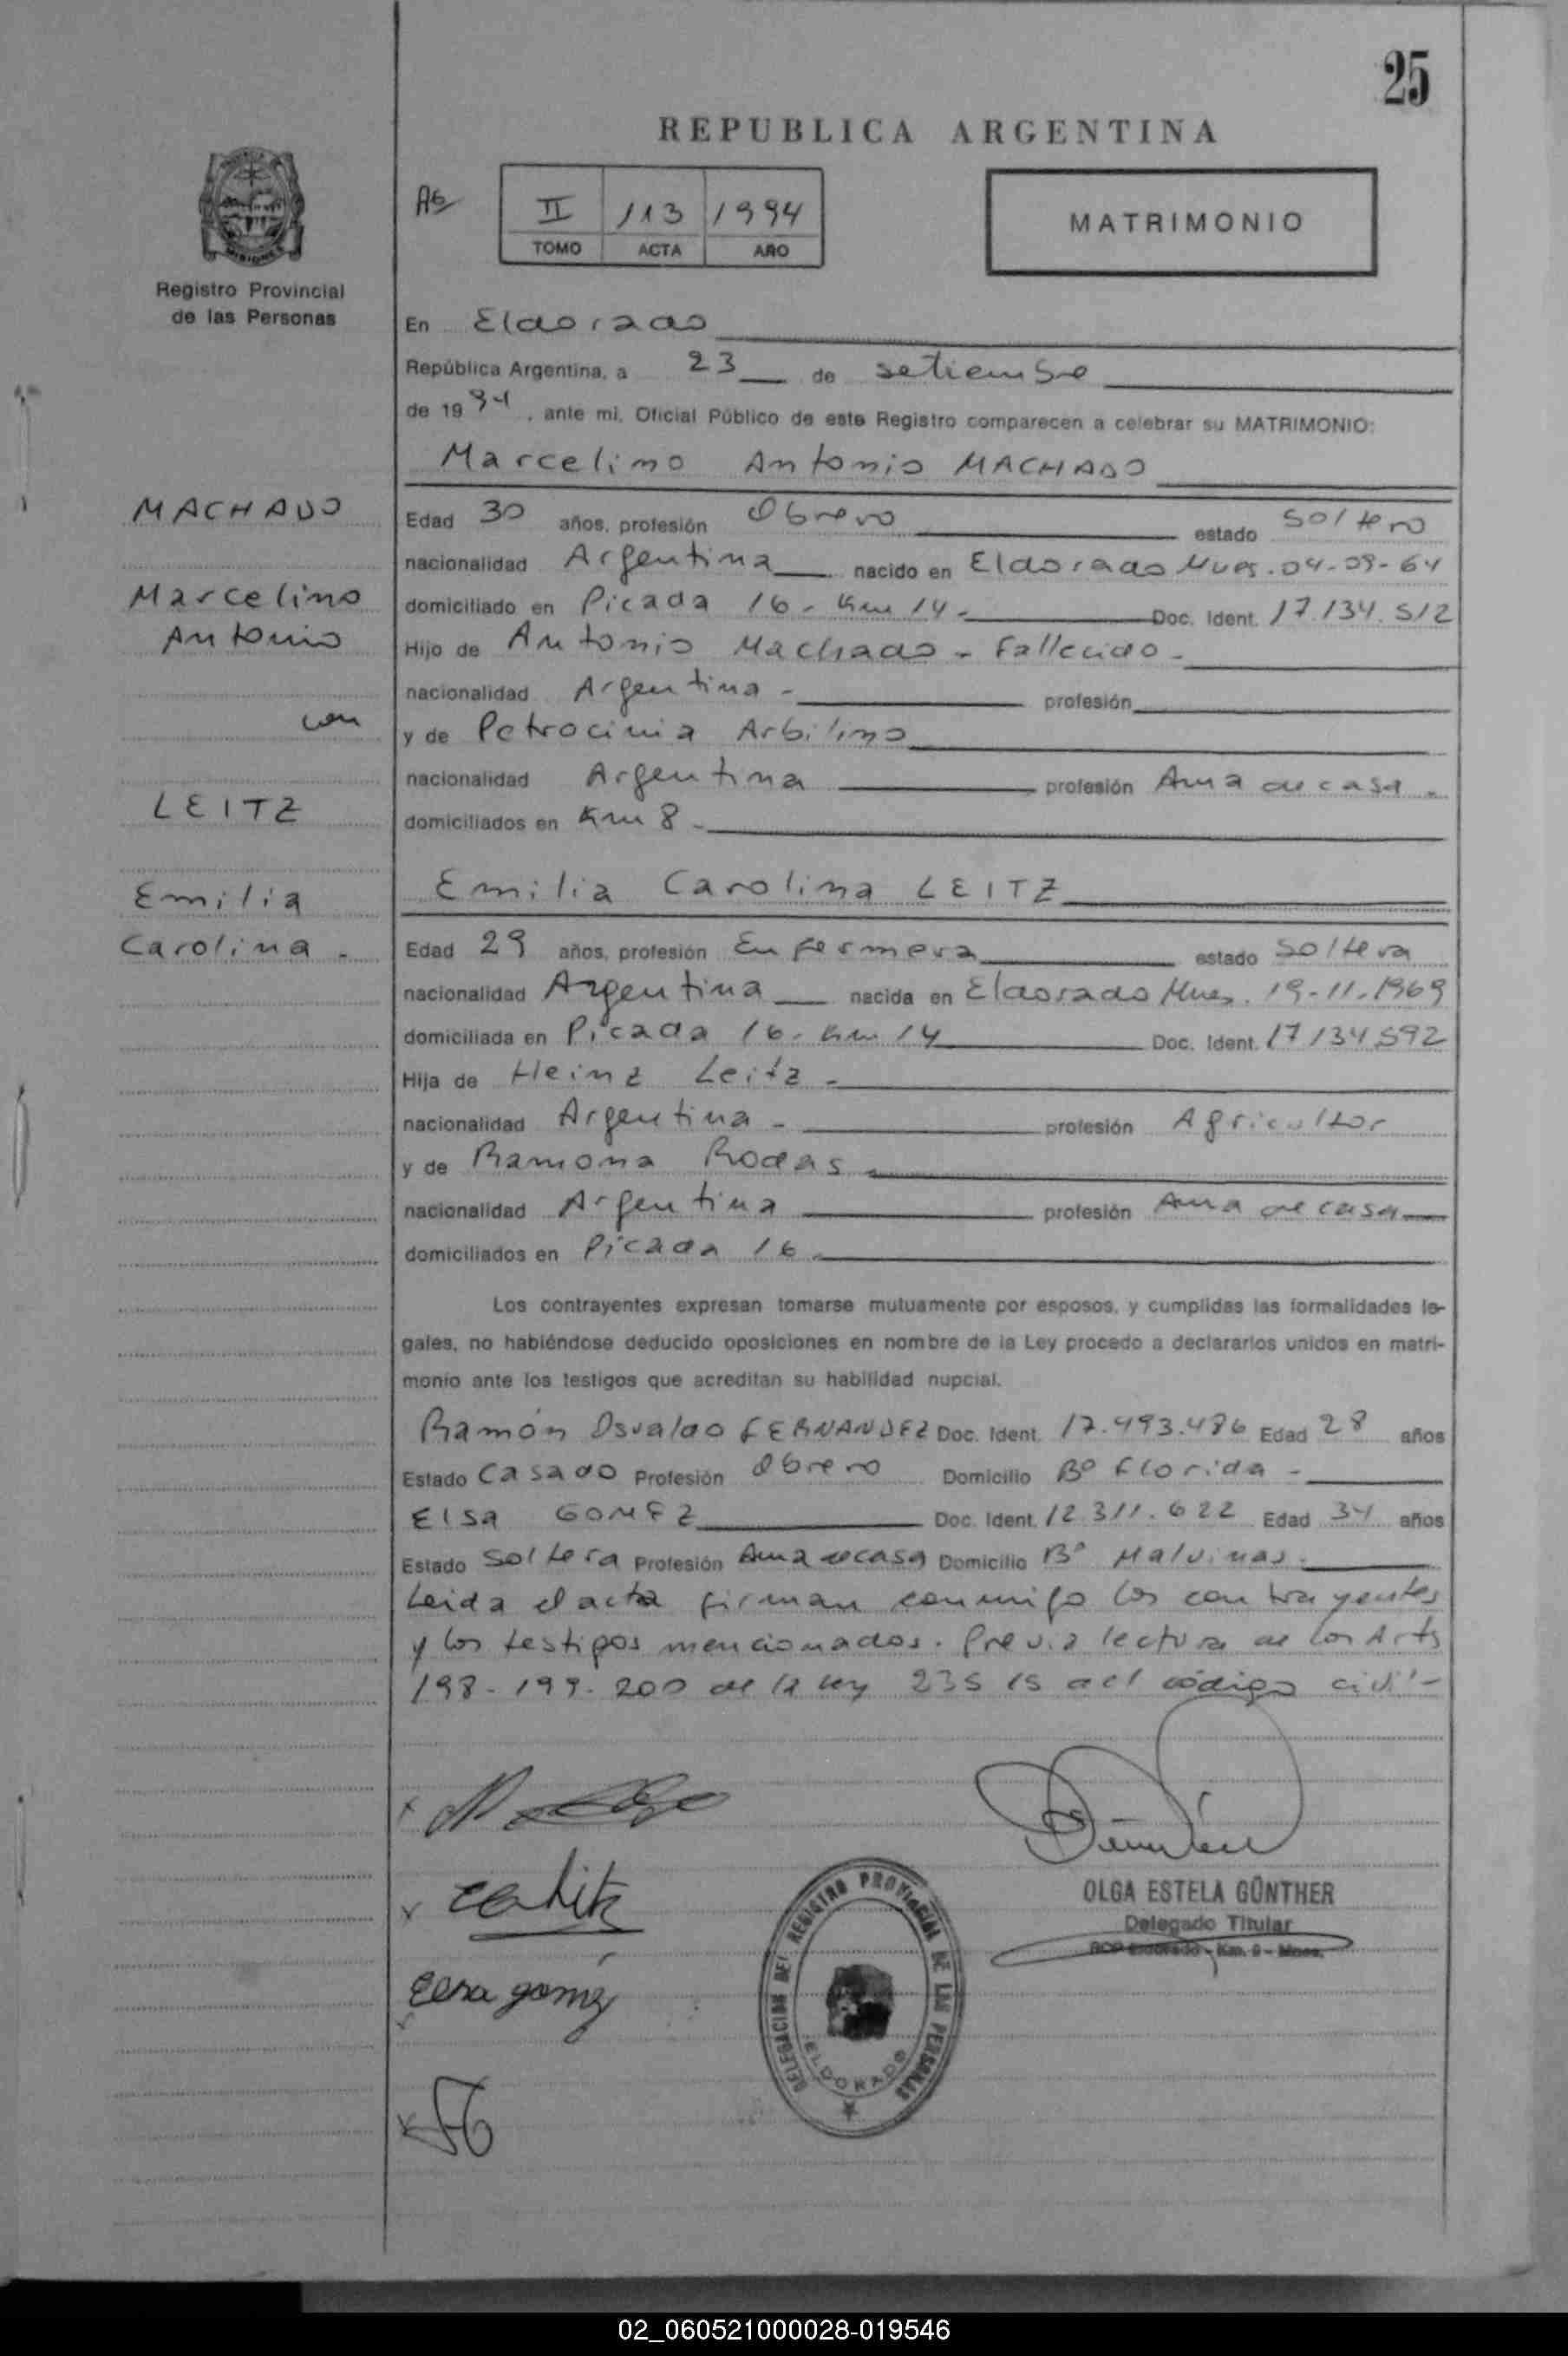 25
REPUBLICA ARGENTINA
II 113 1994
TOMO ACTA AÑO
MATRIMONIO
Registro Provincial
de las Personas
En Eldorado
República Argentina, a 23 de setiembre
de 1994, ante mi, Oficial Público de este Registro comparecen a celebrar su MATRIMONIO:
Marcelino Antonio MACHADO
MACHADO
Marcelino
Antonio
con
LEITZ
Emilia
Carolina -
Edad 30 años, profesión Obrero estado Soltero
nacionalidad Argentina nacido en Eldorado Mnes. 04-09-64
domiciliado en Picada 16 - Km 14 - Doc. Ident. 17.134.512
Hijo de Antonio Machado - Fallecido -
nacionalidad Argentina - profesión
y de Petrocinia Arbilino
nacionalidad Argentina profesión Ama de casa -
domiciliados en Km 8 -
Emilia Carolina LEITZ
Edad 29 años, profesión Enfermera estado Soltera
nacionalidad Argentina nacida en Eldorado Mnes. 19-11-1969
domiciliada en Picada 16 - Km 14 Doc. Ident. 17134592
Hija de Heinz Leitz -
nacionalidad Argentina - profesión Agricultor
y de Ramona Rodas -
nacionalidad Argentina profesión Ama de casa
domiciliados en Picada 16 -
Los contrayentes expresan tomarse mutuamente por esposos, y cumplidas las formalidades le-
gales, no habiéndose deducido oposiciones en nombre de la Ley procedo a declararlos unidos en matri-
monio ante los testigos que acreditan su habilidad nupcial.
Ramón Osvaldo FERNANDEZ Doc. Ident. 17.493.486 Edad 28 años
Estado Casado Profesión Obrero Domicilio Bº Florida -
Elsa GOMEZ Doc. Ident. 12.311.622 Edad 34 años
Estado Soltera Profesión Ama de casa Domicilio Bº Malvinas.
Leida el acta firman conmigo los contrayentes
y los testigos mencionados. Previa lectura de los Arts
198-199-200 de la ley 23515 del código civil -
OLGA ESTELA GÜNTHER
Delegado Titular
RCP Eldorado - Km. 9 - Mnes.
Elsa gomez
DELEGACION DEL REGISTRO PROVINCIAL DE LAS PERSONAS
ELDORADO
02_060521000028-019546